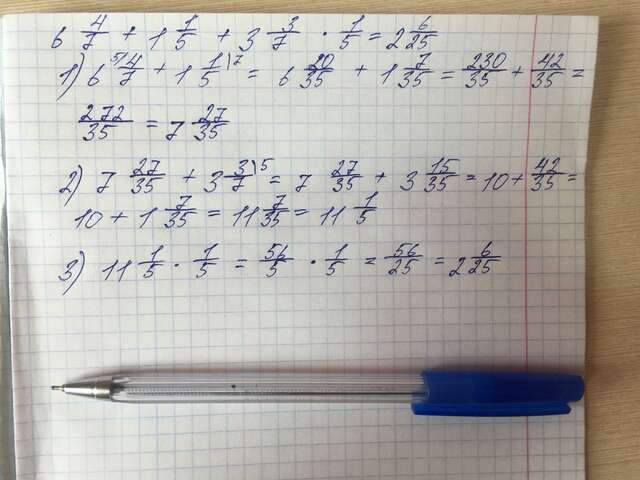 6 4/7 + 1 1/5 + 3 3/7 · 1/5 = 2 6/25
1) 6 5)4/7 + 1 1/5 )7 = 6 20/35 + 1 7/35 = 230/35 + 42/35 =
272/35 = 7 27/35
2) 7 27/35 + 3 3/7 )5 = 7 27/35 + 3 15/35 = 10 + 42/35 =
10 + 1 7/35 = 11 7/35 = 11 1/5
3) 11 1/5 · 1/5 = 56/5 · 1/5 = 56/25 = 2 6/25